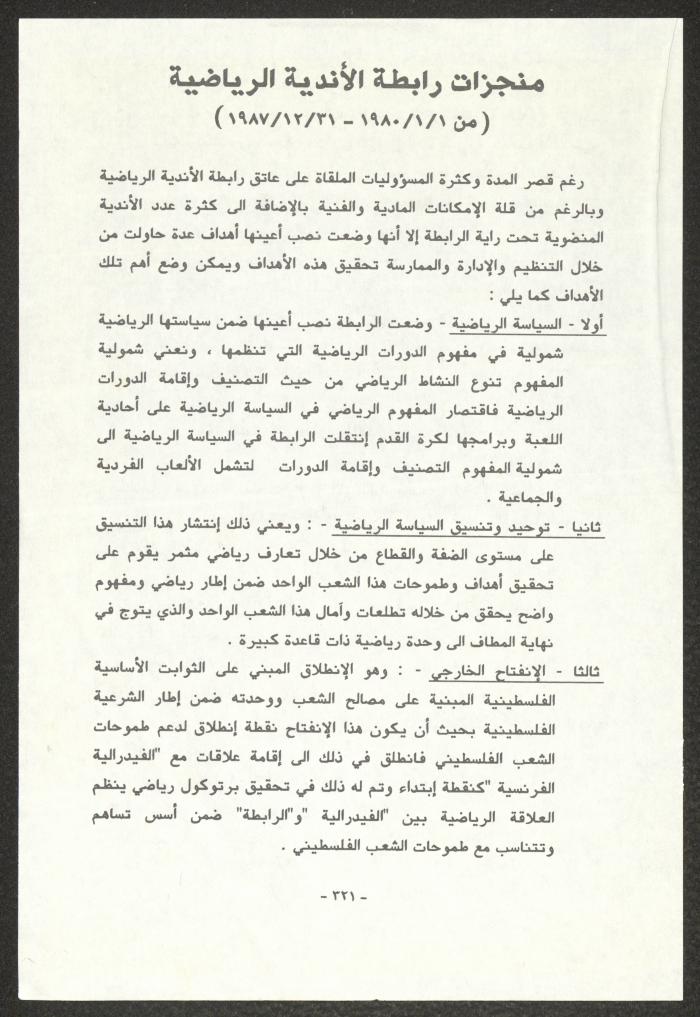 منجزات رابطة الأندية الرياضية
( من ١٩٨٠/١/١ - ١٩٨٧/١٢/٣١ )
رغم قصر المدة وكثرة المسؤوليات الملقاة على عاتق رابطة الأندية الرياضية
وبالرغم من قلة الإمكانات المادية والفنية بالإضافة الى كثرة عدد الأندية
المنضوية تحت راية الرابطة إلا أنها وضعت نصب أعينها أهداف عدة حاولت من
خلال التنظيم والإدارة والممارسة تحقيق هذه الأهداف ويمكن وضع أهم تلك
الأهداف كما يلي :
أولا - السياسة الرياضية - وضعت الرابطة نصب أعينها ضمن سياستها الرياضية
شمولية في مفهوم الدورات الرياضية التي تنظمها ، ونعني شمولية
المفهوم تنوع النشاط الرياضي من حيث التصنيف وإقامة الدورات
الرياضية فاقتصار المفهوم الرياضي في السياسة الرياضية على أحادية
اللعبة وبرامجها لكرة القدم إنتقلت الرابطة في السياسة الرياضية الى
شمولية المفهوم التصنيف وإقامة الدورات لتشمل الألعاب الفردية
والجماعية .
ثانيا - توحيد وتنسيق السياسة الرياضية - : ويعني ذلك إنتشار هذا التنسيق
على مستوى الضفة والقطاع من خلال تعارف رياضي مثمر يقوم على
تحقيق أهداف وطموحات هذا الشعب الواحد ضمن إطار رياضي ومفهوم
واضح يحقق من خلاله تطلعات وآمال هذا الشعب الواحد والذي يتوج في
نهاية المطاف الى وحدة رياضية ذات قاعدة كبيرة .
ثالثا - الإنفتاح الخارجي - : وهو الإنطلاق المبني على الثوابت الأساسية
الفلسطينية المبنية على مصالح الشعب ووحدته ضمن إطار الشرعية
الفلسطينية بحيث أن يكون هذا الإنفتاح نقطة إنطلاق لدعم طموحات
الشعب الفلسطيني فانطلق في ذلك الى إقامة علاقات مع "الفيدرالية
الفرنسية "كنقطة إبتداء وتم له ذلك في تحقيق برتوكول رياضي ينظم
العلاقة الرياضية بين "الفيدرالية "و"الرابطة" ضمن أسس تساهم
وتتناسب مع طموحات الشعب الفلسطيني .
- ٣٢١ -